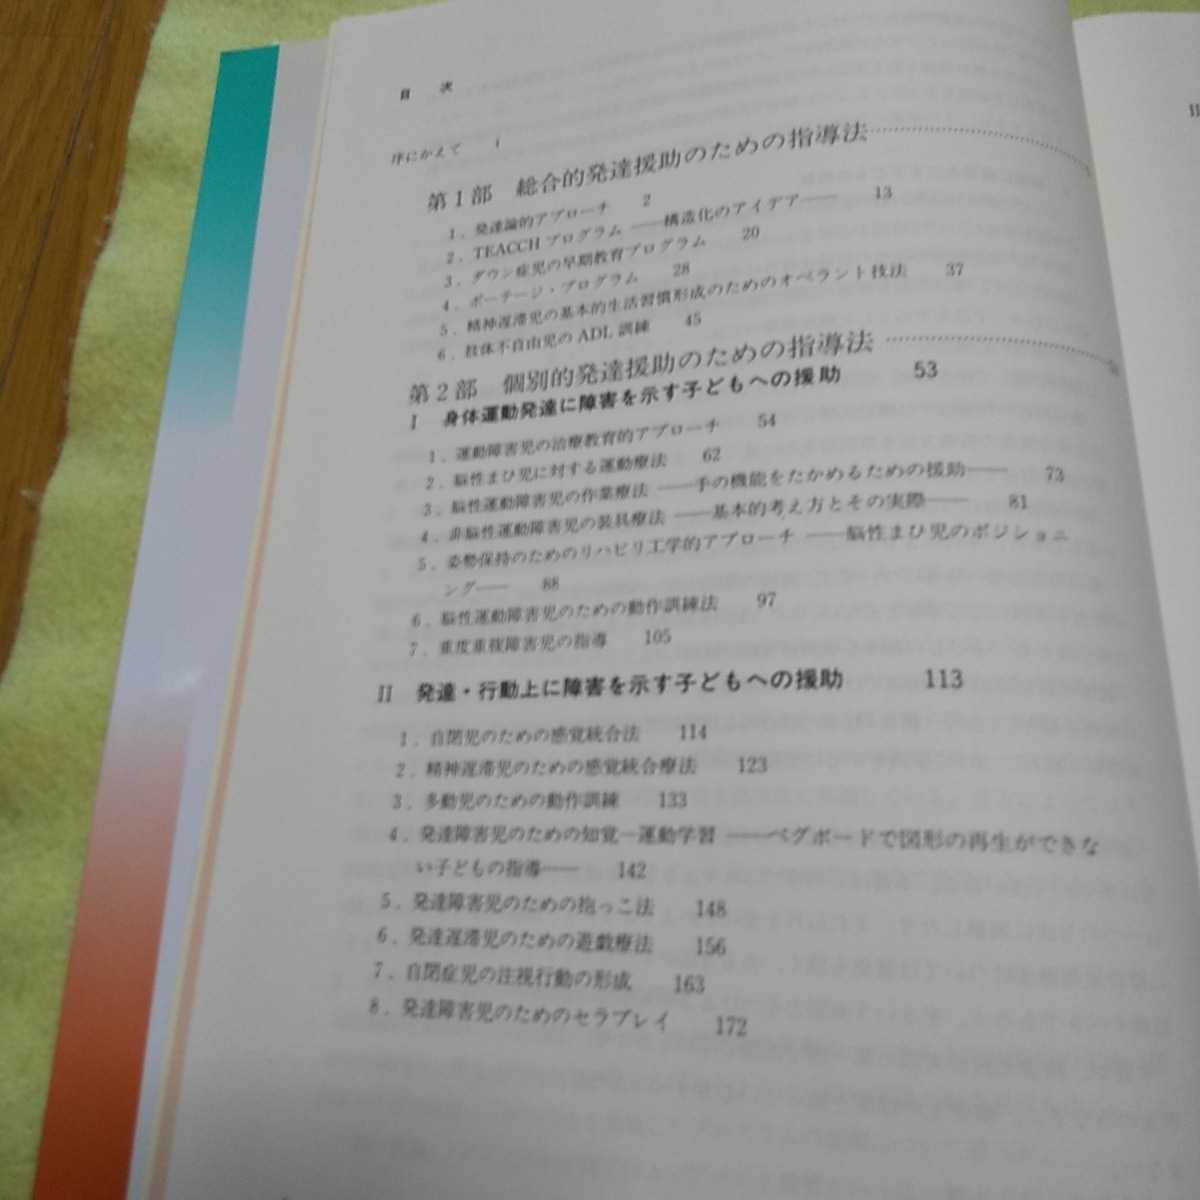 目　次
序にかえて　i
第1部　総合的発達援助のための指導法……………………1
1．発達論的アプローチ　2
2．TEACCHプログラム――構造化のアイデア――　13
3．ダウン症児の早期教育プログラム　20
4．ポーテージ・プログラム　28
5．精神遅滞児の基本的生活習慣形成のためのオペラント技法　37
6．肢体不自由児のADL訓練　45
第2部　個別的発達援助のための指導法……………………
I　身体運動発達に障害を示す子どもへの援助　53
1．運動障害児の治療教育的アプローチ　54
2．脳性まひ児に対する運動療法　62
3．脳性運動障害児の作業療法――手の機能をたかめるための援助――　73
4．非脳性運動障害児の装具療法――基本的考え方とその実際――　81
5．姿勢保持のためのリハビリ工学的アプローチ――脳性まひ児のポジショニ
ング――　88
6．脳性運動障害児のための動作訓練法　97
7．重度重複障害児の指導　105
II　発達・行動上に障害を示す子どもへの援助　113
1．自閉児のための感覚統合法　114
2．精神遅滞児のための感覚統合療法　123
3．多動児のための動作訓練　133
4．発達障害児のための知覚－運動学習――ペグボードで図形の再生ができな
い子どもの指導――　142
5．発達障害児のための抱っこ法　148
6．発達遅滞児のための遊戯療法　156
7．自閉症児の注視行動の形成　163
8．発達障害児のためのセラプレイ　172